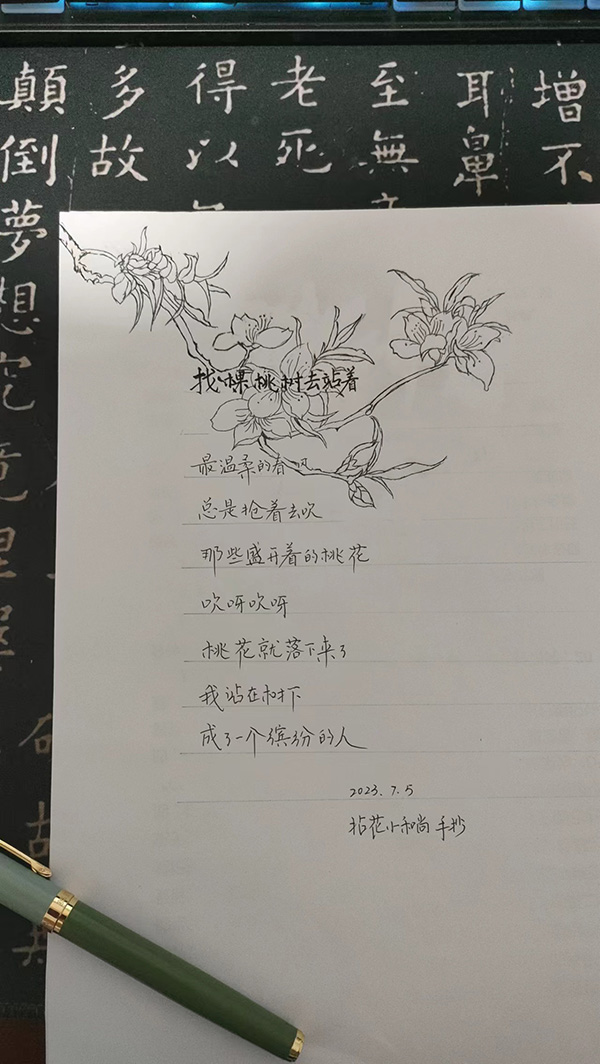 增不
耳鼻
至無
老死
得以
多故
顛倒夢想究竟
找棵桃树去站着
最温柔的春风
总是抢着去吹
那些盛开着的桃花
吹呀吹呀
桃花就落下来了
我站在树下
成了一个缤纷的人
2023.7.5
拈花小和尚 手抄